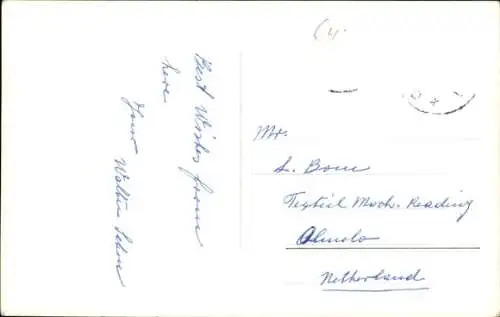 Best Wishes from
here
Your Walter
Mr.
L. Bom
Textiel Mach. Reading
Almelo
Netherland